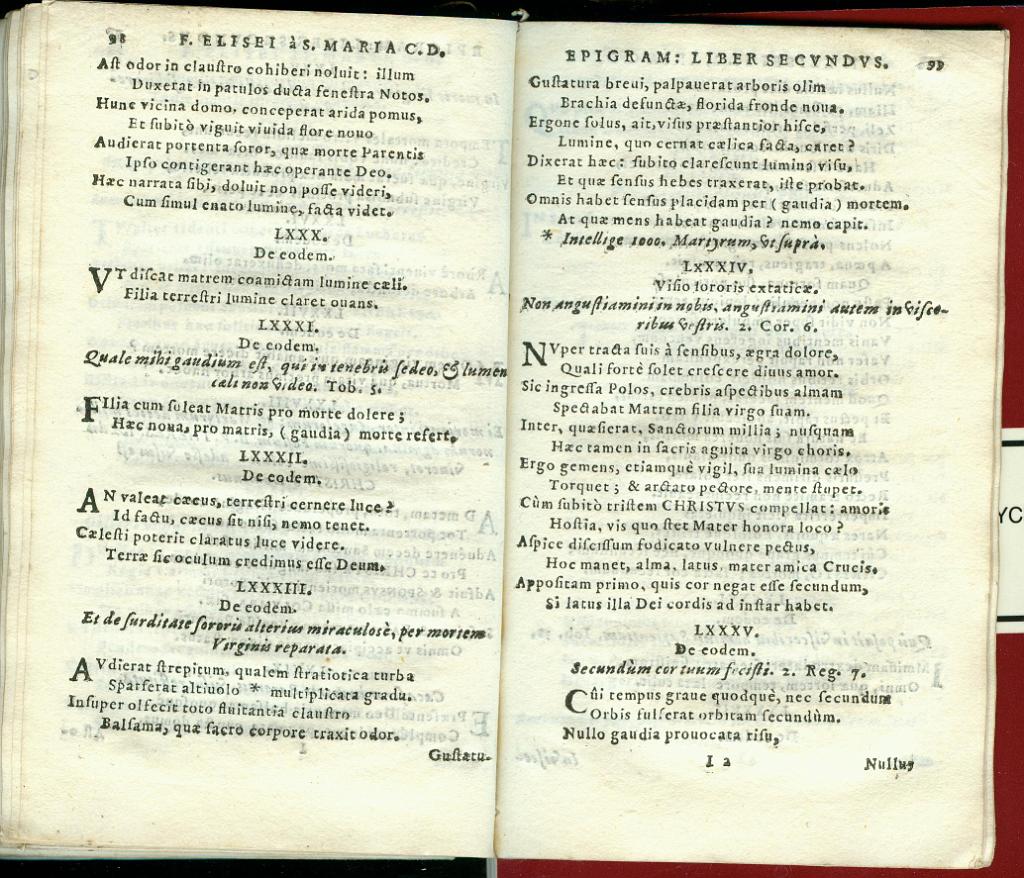 98 F. ELISEI à S. MARIA C. D.
Aſt odor in clauſtro cohiberi noluit: illum
Duxerat in patulos ducta feneſtra Notos.
Hunc vicina domo, conceperat arida pomus,
Et ſubitò viguit viuida flore nouo
Audierat portenta ſoror, quæ morte Parentis
Ipſo contigerant hæc operante Deo.
Hæc narrata ſibi, doluit non poſſe videri,
Cum ſimul enato lumine, facta videt.
LXXX.
De eodem.
VT diſcat matrem coamictam lumine cæli.
Filia terreſtri lumine claret ouans.
LXXXI.
De eodem.
Quale mihi gaudium eſt, qui in tenebris ſedeo, & lumen
cæli non video. Tob. 5.
FIlia cum ſoleat Matris pro morte dolere;
Hæc noua, pro matris, (gaudia) morte refert.
LXXXII.
De eodem.
AN valeat cæcus, terreſtri cernere luce?
Id factu, cæcus ſit niſi, nemo tenet.
Cæleſti poterit claratus luce videre.
Terræ ſic oculum credimus eſſe Deum.
LXXXIII.
De eodem.
Et de ſurditate ſororis alterius miraculosè, per mortem
Virginis reparata.
AVdierat ſtrepitum, qualem ſtratiotica turba
Sparſerat altiuolo * multiplicata gradu.
Inſuper olfecit toto fluitantia clauſtro
Balſama, quæ ſacro corpore traxit odor.
I
Guſtatu-
EPIGRAM: LIBER SECVNDVS. 99
Guſtatura breui, palpauerat arboris olim
Brachia defunctæ, florida fronde noua.
Ergone ſolus, ait, viſus præſtantior hiſce,
Lumine, quo cernat cælica facta, caret?
Dixerat hæc: ſubito clareſcunt lumina viſu,
Et quæ ſenſus hebes traxerat, iſte probat.
Omnis habet ſenſus placidam per (gaudia) mortem.
At quæ mens habeat gaudia? nemo capit.
* Intellige 1000. Martyrum, vt ſuprà.
LxXXIV.
Viſio ſororis extaticæ.
Non anguſtiamini in nobis, anguſtiamini autem in viſce-
ribus veſtris. 2. Cor. 6.
NVper tracta ſuis à ſenſibus, ægra dolore,
Quali fortè ſolet creſcere diuus amor.
Sic ingreſſa Polos, crebris aſpectibus almam
Spectabat Matrem filia virgo ſuam.
Inter, quæſierat, Sanctorum millia; nuſquam
Hæc tamen in ſacris agnita virgo choris.
Ergo gemens, etiamquè vigil, ſua lumina cælo
Torquet; & arctato pectore, mente ſtupet.
Cùm ſubitò triſtem CHRISTVS compellat: amoris
Hoſtia, vis quo ſtet Mater honora loco?
Aſpice diſciſſum fodicato vulnere pectus,
Hoc manet, alma, latus, mater amica Crucis.
Appoſitam primo, quis cor negat eſſe ſecundum,
Si latus illa Dei cordis ad inſtar habet.
LXXXV.
De eodem.
Secundùm cor tuum feciſti. 2. Reg. 7.
CVi tempus graue quodquè, nec ſecundum
Orbis fulſerat orbitam ſecundùm.
Nullo gaudia prouocata riſu,
I 2
Nullus
YC